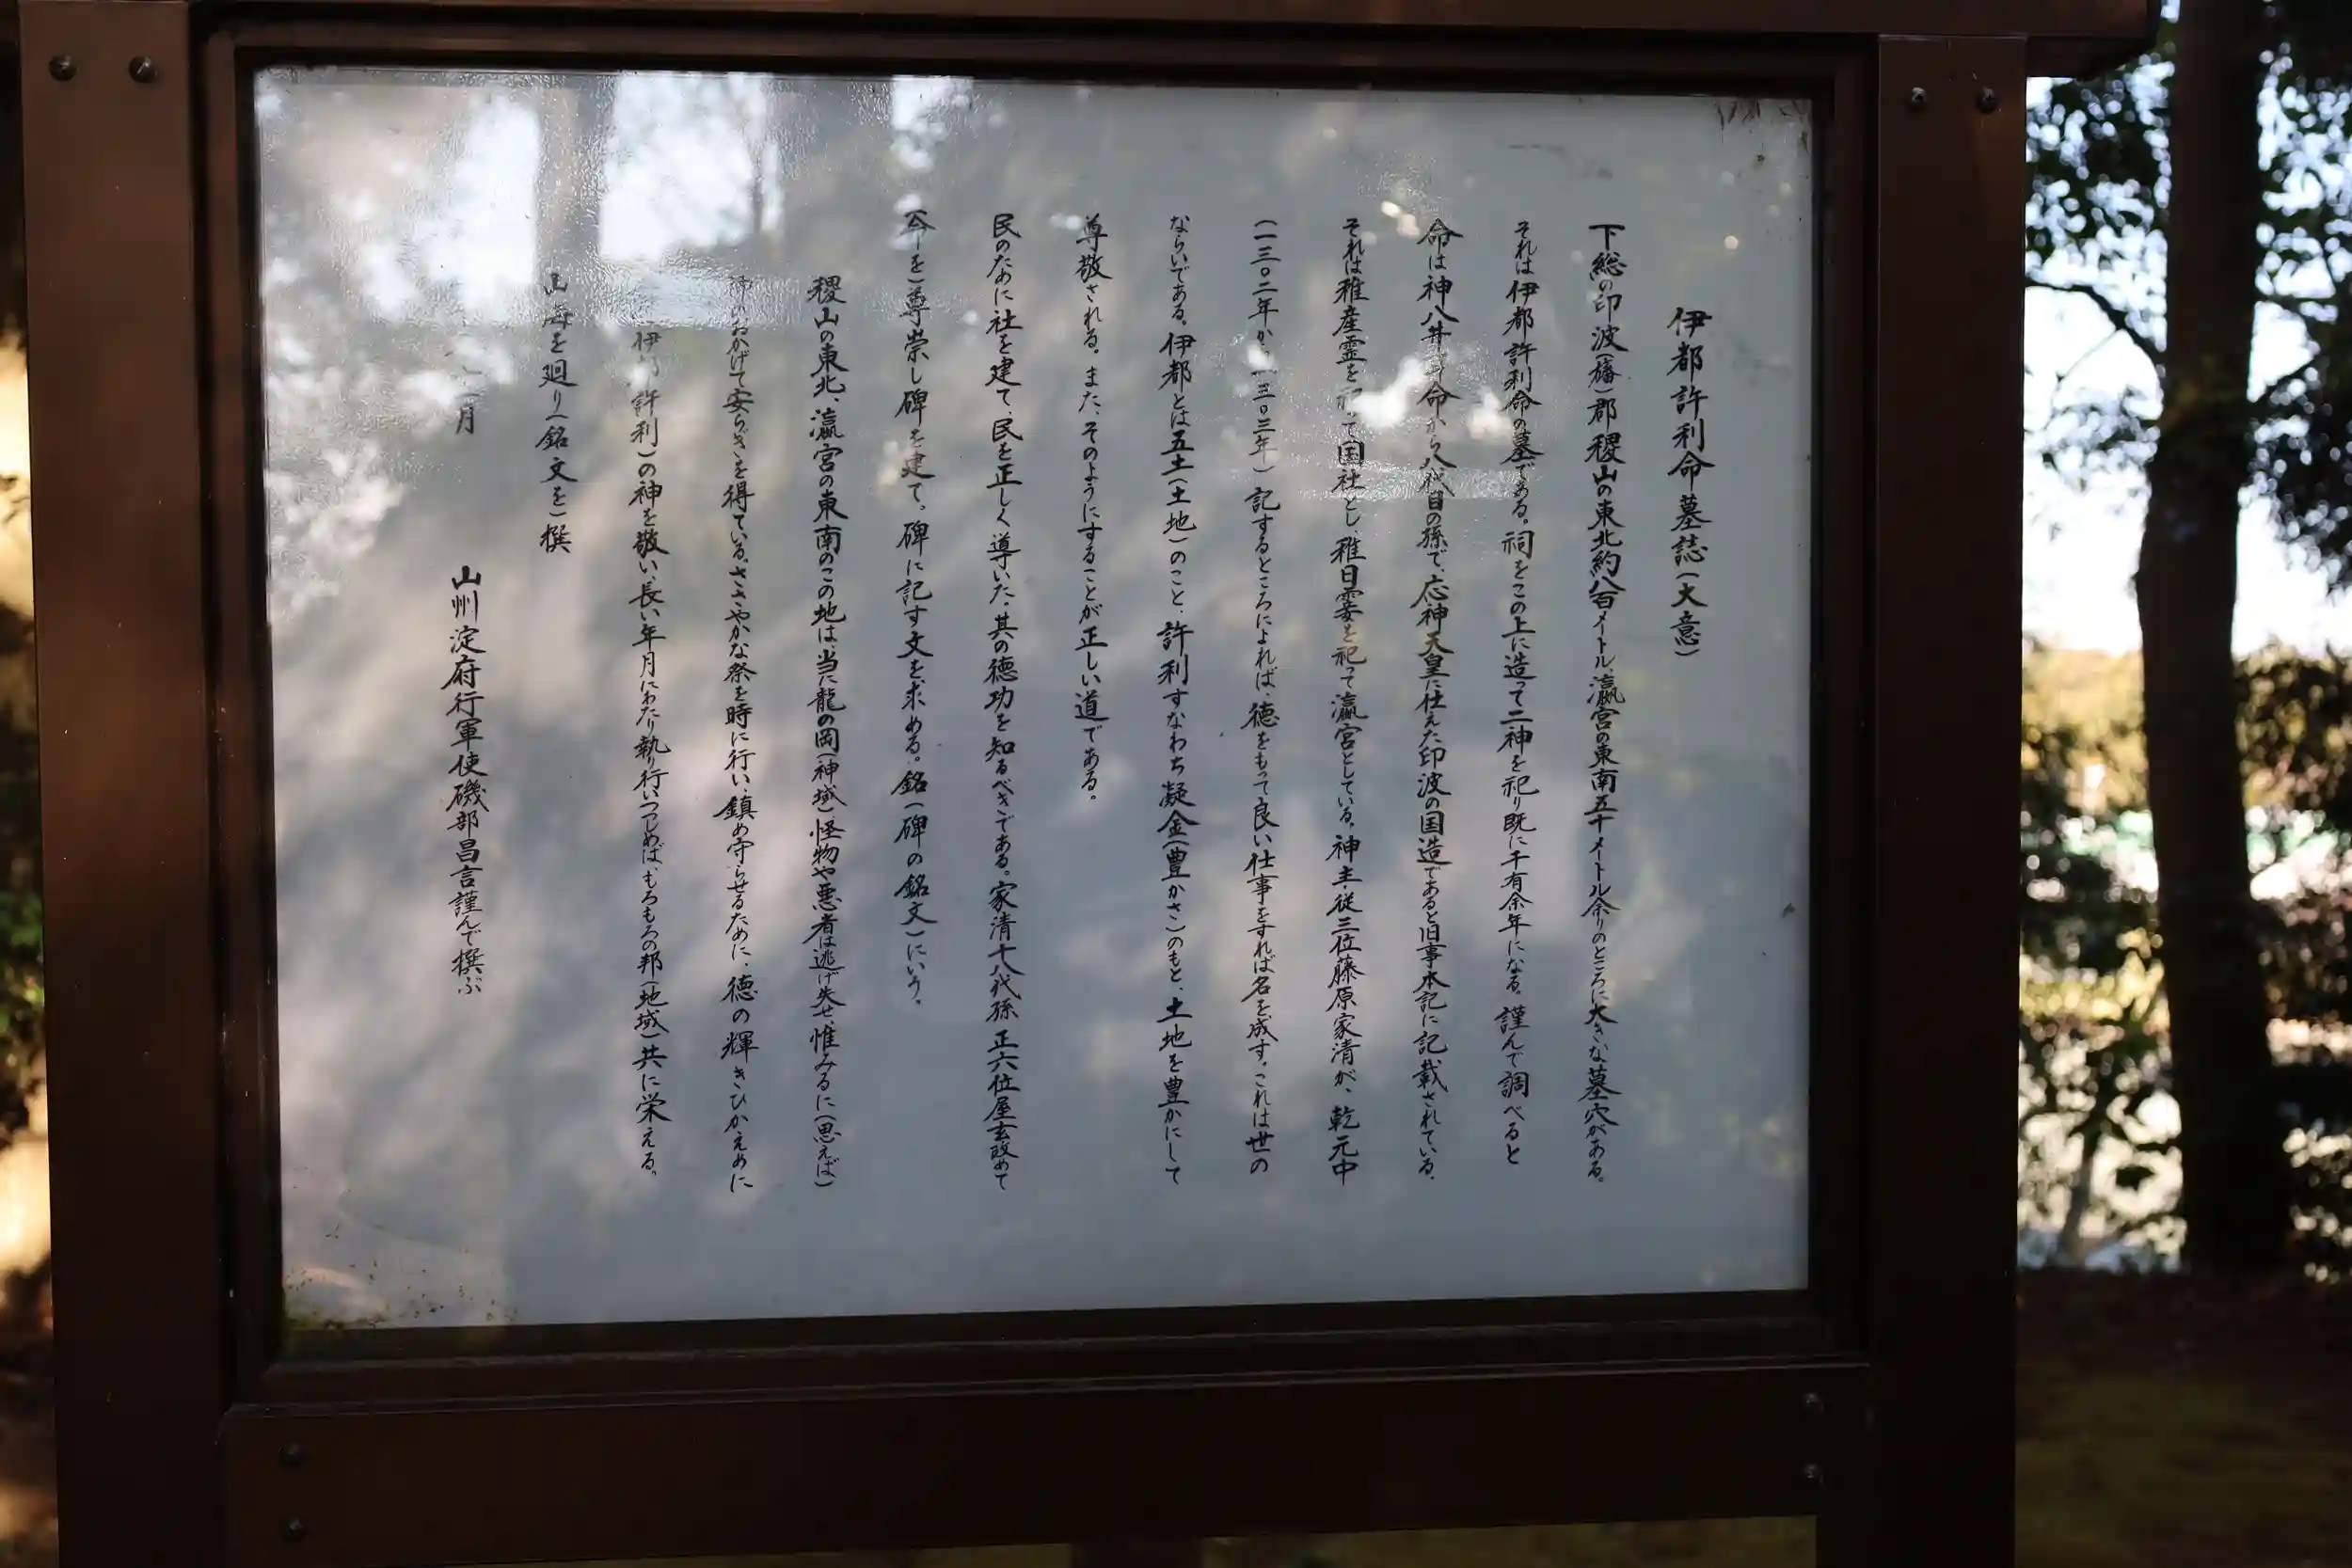 伊都許利命墓誌(大意)
下総の印波(旛)郡稷山の東北約八百メートル、瀛宮の東南五十メートル余りのところに大きな墓穴がある。
それは伊都許利命の墓である。祠をこの上に造って二神を祀り既に千有余年になる。謹んで調べると
命は神八井命から八代目の孫で、応神天皇に仕えた印波の国造であると旧事本記に記載されている。
それは稚産霊を祀って国社とし稚日霊を祀って瀛宮としている。神主従三位藤原家清が、乾元中
(一三〇二年から一三〇三年)記するところによれば、徳をもって良い仕事をすれば名を成す。これは世の
ならいである。伊都とは五土(土地)のこと、許利すなわち凝金(豊かさ)のもと、土地を豊かにして
尊敬される。また、そのようにすることが正しい道である。
民のために社を建て、民を正しく導いた。其の徳功を知るべきである。家清十八代孫正六位屋玄改めて
(今を)尊崇し碑を建て。碑に記す文を求める。銘(碑の銘文)にいう。
稷山の東北、瀛宮の東南のこの地は、当に龍の岡(神域)怪物や悪者は逃げ失せ、惟みるに(思えば)
おかげで安らぎを得ている。ささやかな祭を時に行い、鎮め守らせるために、徳の輝きひかえめに
伊都許利)の神を敬い長い年月にわたり執り行いつとめば、もろもろの邦(地域)共に栄える。
山海を廻り(銘文を)撰
月
山州淀府行軍使磯部昌言謹んで撰ぶ